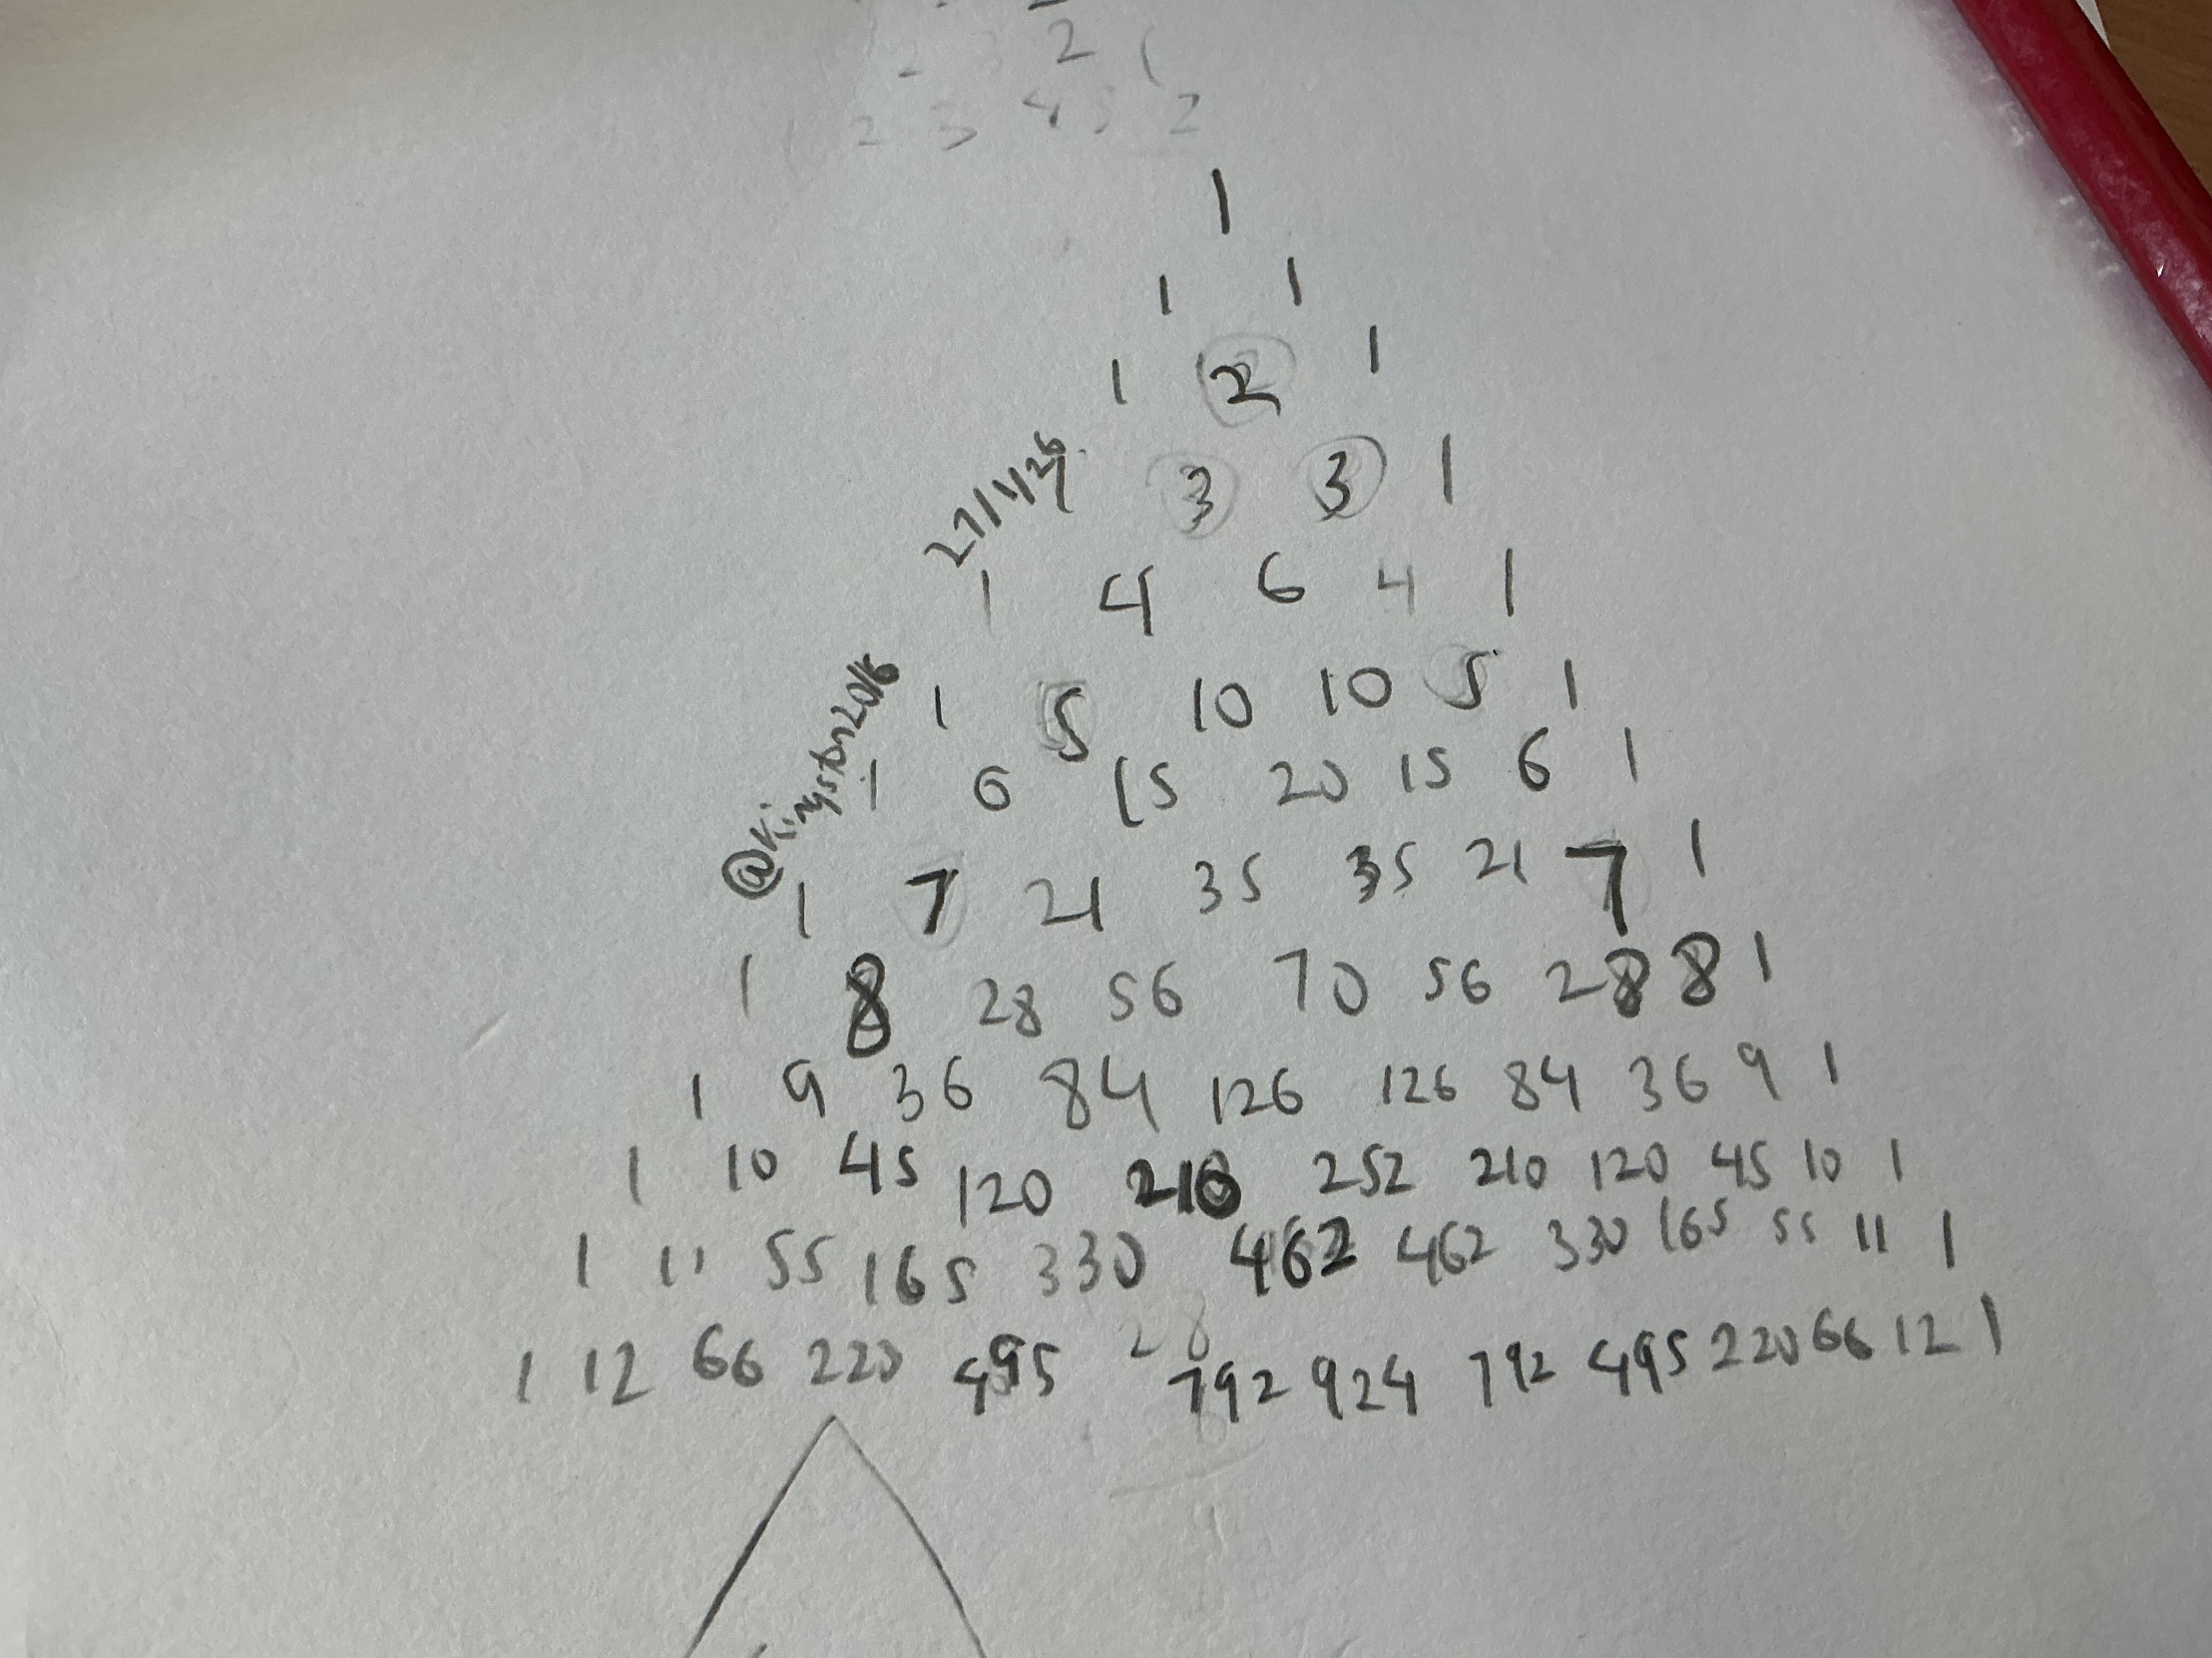 2 (
2 3 4 5 2
1
1 1
1 2 1
27/1/26
1 3 3 1
1 4 6 4 1
@Kingston2016
1 5 10 10 5 1
1 6 15 20 15 6 1
1 7 21 35 35 21 7 1
1 8 28 56 70 56 28 8 1
1 9 36 84 126 126 84 36 9 1
1 10 45 120 210 252 210 120 45 10 1
1 11 55 165 330 462 462 330 165 55 11 1
28
1 12 66 220 495 792 924 792 495 220 66 12 1